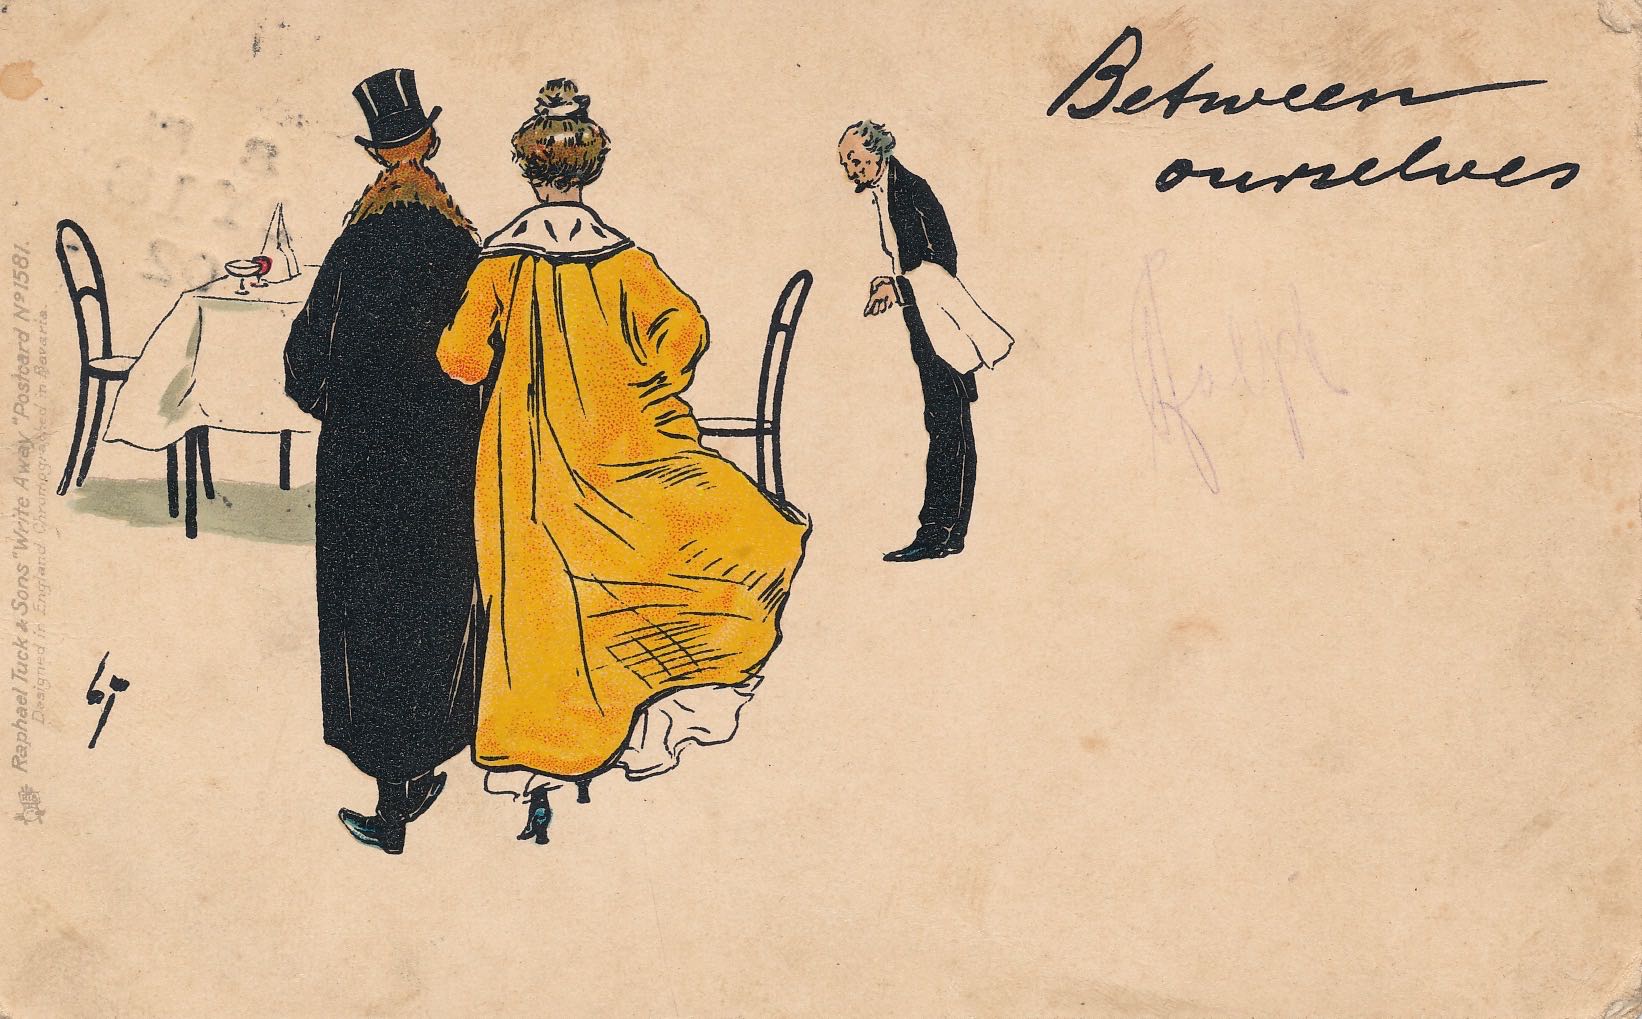 Between
ourselves
Ralph
Raphael Tuck & Sons "Write Away" Postcard Nº 1581.
Designed in England Chromographed in Bavaria.